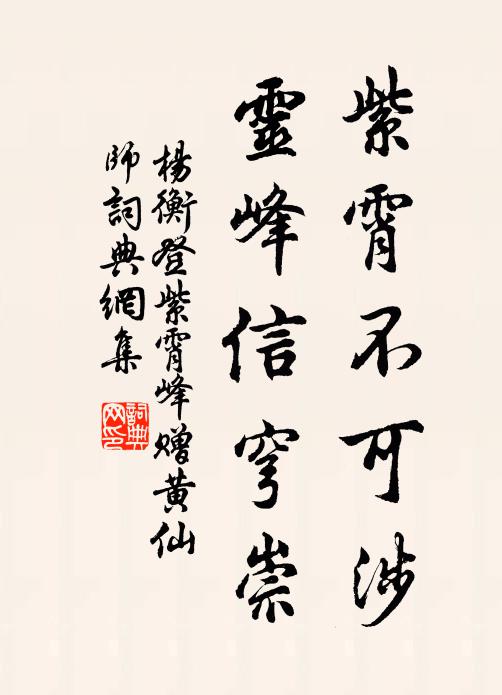 紫霄不可涉
靈峰信穹崇
楊衡登紫霄峰贈黄仙
師詞典網集
詞典
网印